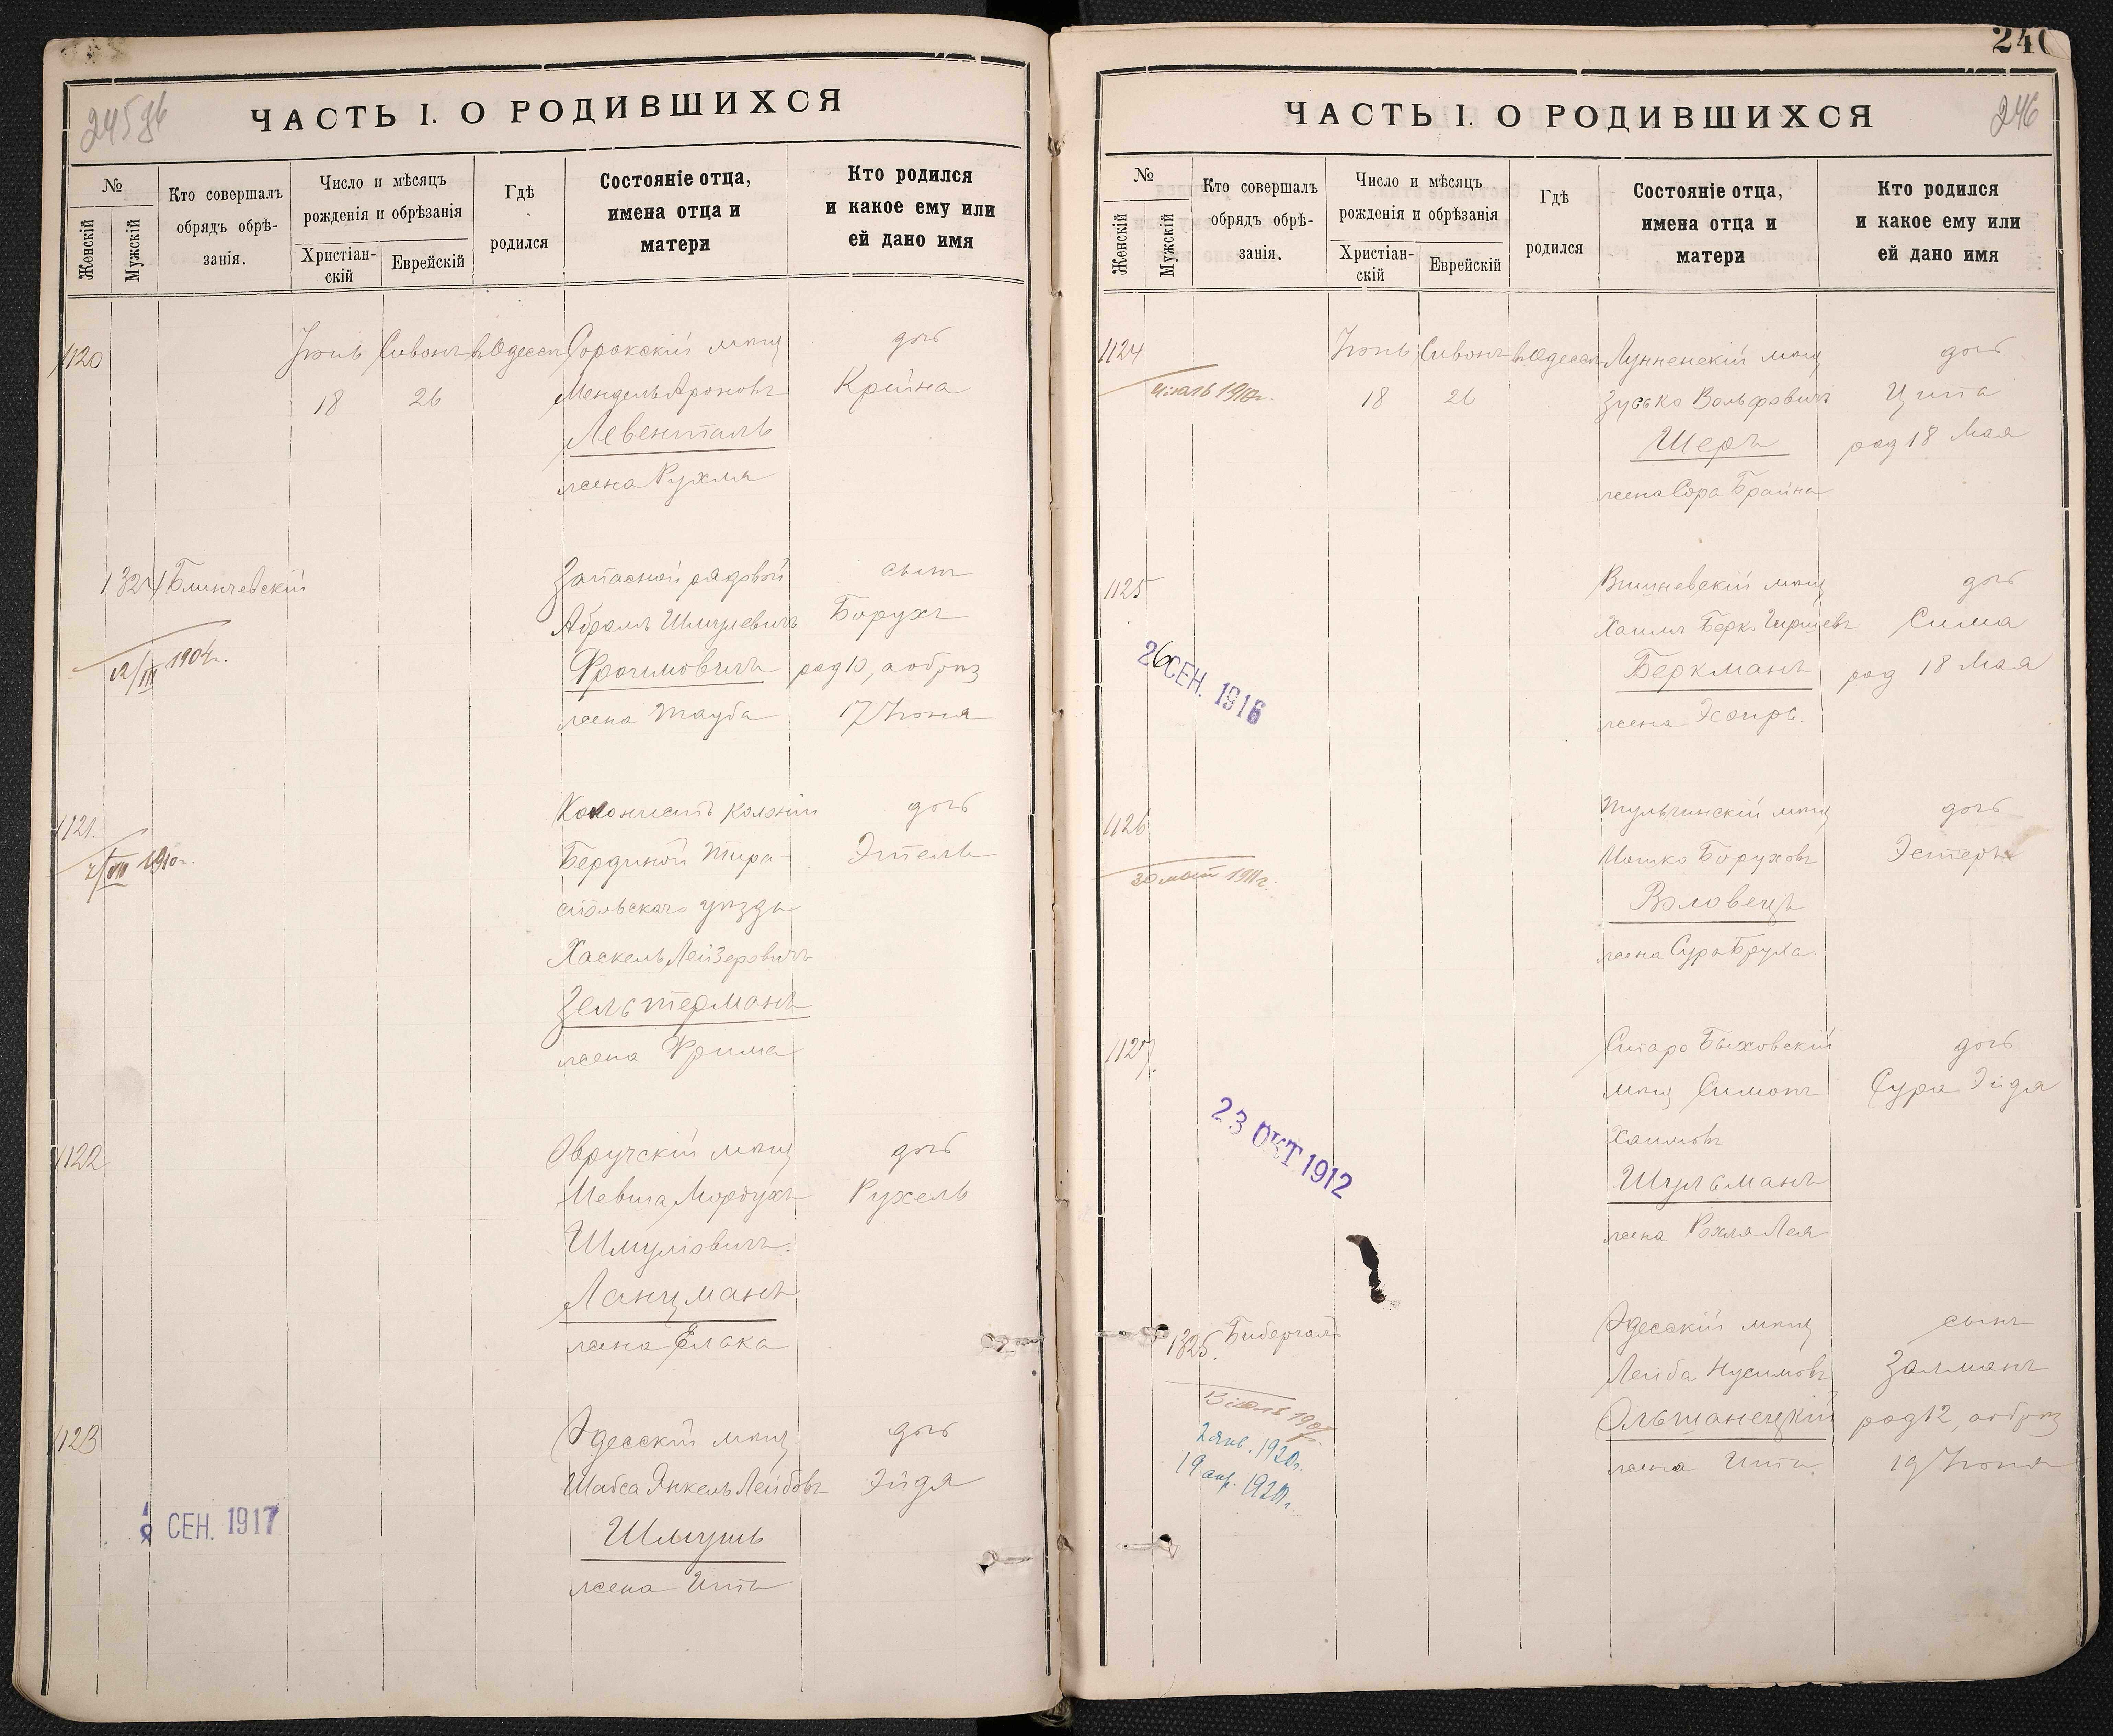 245 об
ЧАСТЬ I. О РОДИВШИХСЯ
№
Женскій
Мужскій
Кто совершалъ
обрядъ обрѣ-
занія.
Число и мѣсяцъ
рожденія и обрѣзанія
Христіан-
скій
Еврейскій
Гдѣ
родился
Состояніе отца,
имена отца и
матери
Кто родился
и какое ему или
ей дано имя
1120 Іюнь Сивонъ въ Одессѣ Сорокскій мѣщ дочь
18 26 Мендель Ароновъ Крейна
Левенталь
жена Рухля
1324 Блинчевскій Запасной рядовой сынъ
Абрамъ Шмулевичъ Борухъ
12/III 1904г. Фроимовичъ род 10, а обрѣз
жена Тауба 17 Іюня
1121. Колонистъ колоніи дочь
/VII 1910г. Бердиной Тира- Этель
спольскаго уѣзда
Хаскель Лейзеровичъ
Зельтерманъ
жена Фрима
1122 Овручскій мѣщ дочь
Мевша Мордухъ Рухель
Шмуліовичъ
Ланцманъ
жена Елака
1123 Одесскій мѣщ дочь
Шабса Янкель Лейбовъ Эйдя
СЕН. 1917 Шмушь
жена Ита
240
ЧАСТЬ I. О РОДИВШИХСЯ
246
№
Женскій
Мужскій
Кто совершалъ
обрядъ обрѣ-
занія.
Число и мѣсяцъ
рожденія и обрѣзанія
Христіан-
скій
Еврейскій
Гдѣ
родился
Состояніе отца,
имена отца и
матери
Кто родился
и какое ему или
ей дано имя
1124 Іюнь Сивонъ въ Одессѣ Лунненскій мѣщ дочь
1910г. 18 26 Зусько Вольфовичъ Ципа
Шеръ род 18 Мая
жена Сора Брайна
1125 Вишневскій мѣщ дочь
Хаимъ Беръ Гиршевъ Сима
26 СЕН. 1916 Беркманъ род 18 Мая
жена Эсфирь.
1126 Тульчинскій мѣщ дочь
Мошко Боруховъ Эстеръ
30 1911г. Воловецъ
жена Сура Бруха
1127. Старо Быховскій дочь
мѣщ Симонъ Сура Эйдя
23 ОКТ 1912 Хаимовъ
Шульманъ
жена Рохля Лея
1325. Бибергаль Одесскій мѣщ сынъ
Лейба Нусимовъ Залманъ
13 іюль Ольшанецкій род 12, а обрѣз
2 янв. 1920г. жена Ита 19 Іюня
19 апр. 1920г.